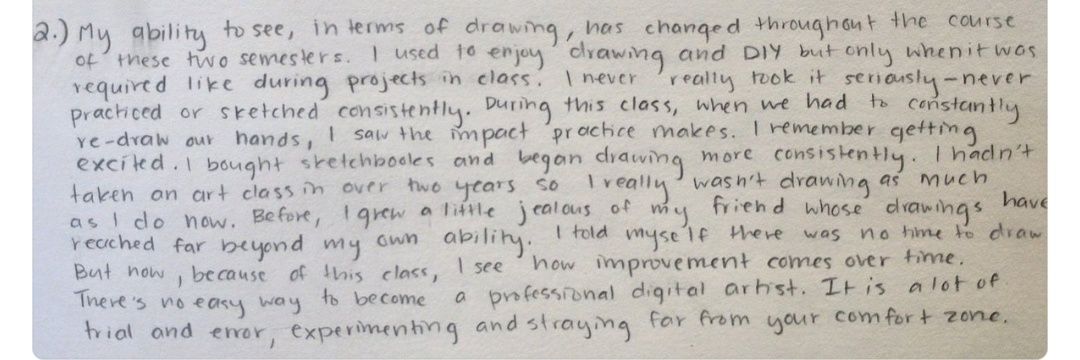 2.) My ability to see, in terms of drawing, has changed throughout the course
of these two semesters. I used to enjoy drawing and DIY but only when it was
required like during projects in class. I never really took it seriously - never
practiced or sketched consistently. During this class, when we had to constantly
re-draw our hands, I saw the impact practice makes. I remember getting
excited. I bought sketchbooks and began drawing more consistently. I hadn't
taken an art class in over two years so I really wasn't drawing as much
as I do now. Before, I grew a little jealous of my friend whose drawings have
reached far beyond my own ability. I told myself there was no time to draw
But now, because of this class, I see how improvement comes over time.
There's no easy way to become a professional digital artist. It is a lot of
trial and error, experimenting and straying far from your comfort zone.